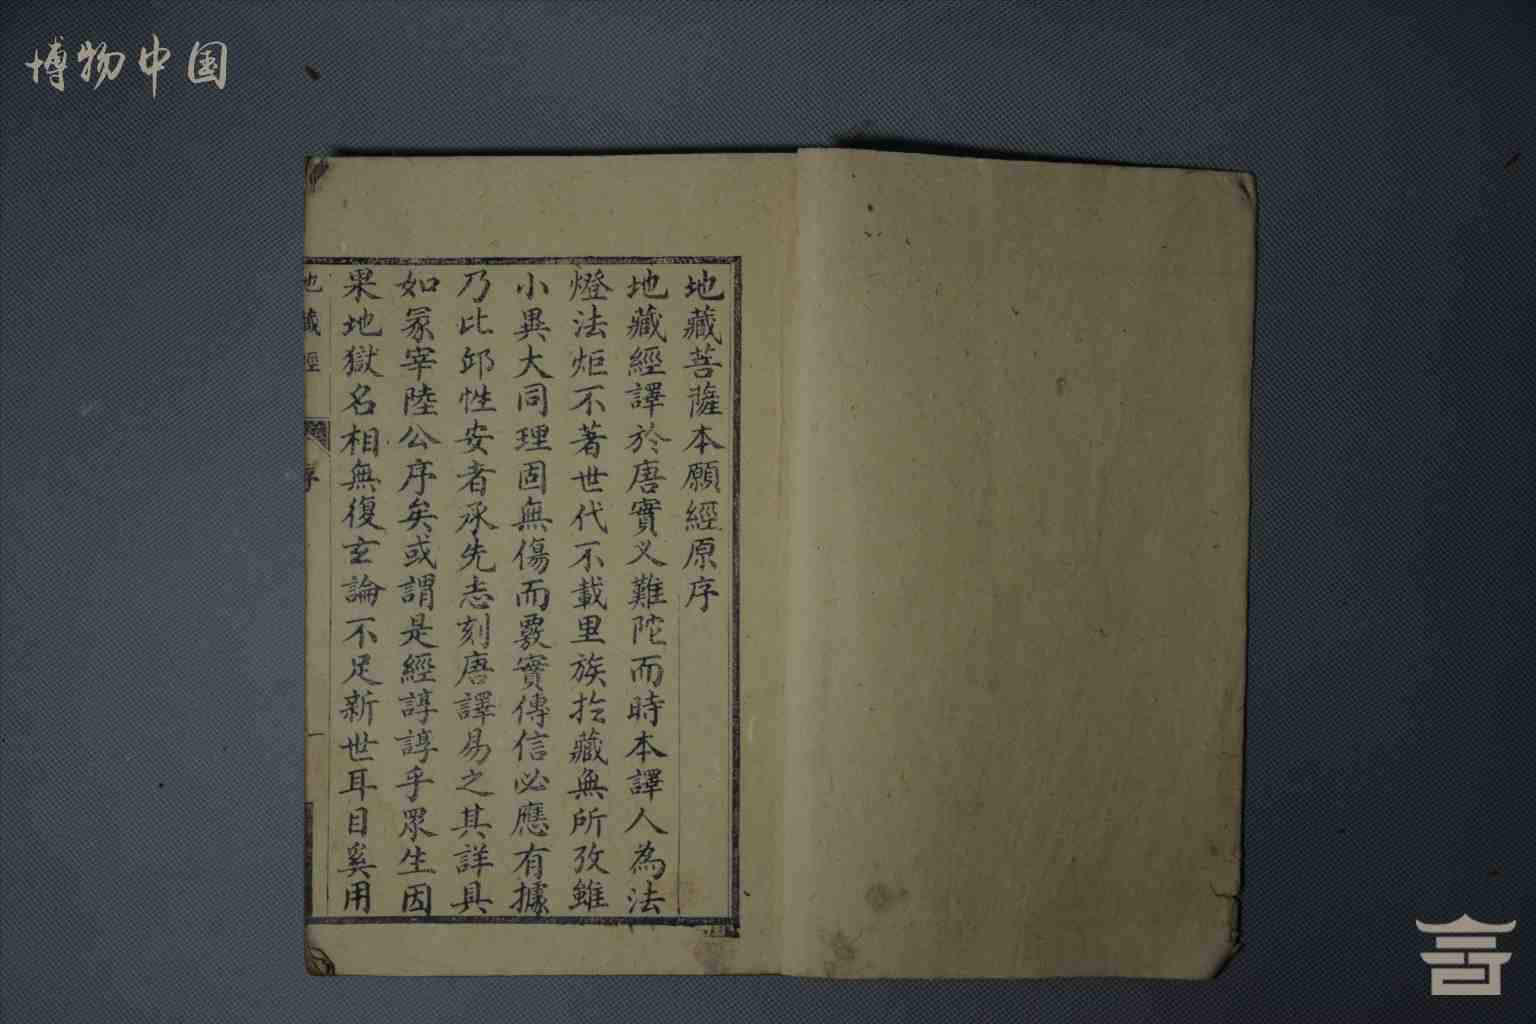 博物中国
地藏菩薩本願經原序
地藏經譯於唐實义難陀而時本譯人為法
燈法炬不著世代不載里族於藏無所攷雖
小異大同理固無傷而覈實傳信必應有據
乃比邱性安者承先志刻唐譯易之其詳具
如冢宰陸公序矣或謂是經諄諄乎眾生因
果地獄名相無復玄論不足新世耳目奚用
地藏經
序
一